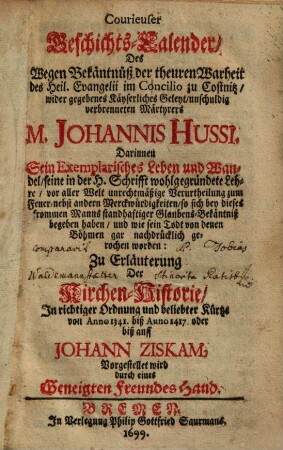 Courieuser
Geschichts-Calender/
Des
Wegen Bekäntnüß der theuren Warheit
des Heil. Evangelii im Concilio zu Costnitz/
wider gegebenes Käyserliches Geleyt/unschuldig
verbrenneten Märtyrers
M. JOHANNIS HUSSI,
Darinnen
Sein Exemplarisches Leben und Wan-
del/seine in der H. Schrifft wohlgegründete Leh-
re/vor aller Welt unrechtmäßige Verurtheilung zum
Feuer nebst andern Merckwürdigkeiten/so sich bey dieses
frommen Manns standhafftiger Glaubens-Bekäntniß
begeben haben/und wie sein Todt von denen
Böhmen gar nachdrücklich ge-
rochen worden:
P. Tobias
Zu Erläuterung
Der
Kirchen-Historie/
In richtiger Ordnung und beliebter Kürtze
von Anno 1341. biß Anno 1417. oder
biß auff
JOHANN ZISKAM,
Vorgestellet wird
durch eines
Geneigten Freundes Hand.
BREMEN,
In Verlegung Philip Gottfried Saurmans,
1699.